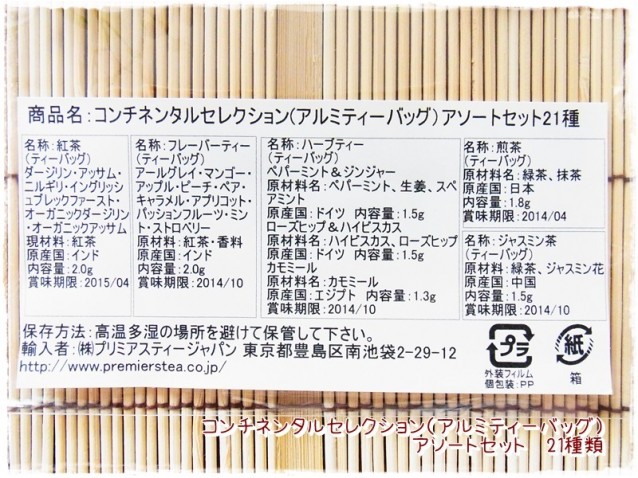 商品名:コンチネンタルセレクション(アルミティーバッグ)アソートセット21種
名称:紅茶
(ティーバッグ)
ダージリン・アッサム・
ニルギリ・イングリッシ
ュブレックファースト・
オーガニックダージリン
・オーガニックアッサム
現材料:紅茶
原産国:インド
内容量:2.0g
賞味期限:2015/04
名称:フレーバーティー
(ティーバッグ)
アールグレイ・マンゴー・
アップル・ピーチ・ペア・
キャラメル・アプリコット・
パッションフルーツ・ミン
ト・ストロベリー
原材料:紅茶・香料
原産国:インド
内容量:2.0g
賞味期限:2014/10
名称:ハーブティー
(ティーバッグ)
ペパーミント&ジンジャー
原材料名:ペパーミント、生姜、スペ
アミント
原産国:ドイツ 内容量:1.5g
ローズヒップ&ハイビスカス
原材料名:ハイビスカス、ローズヒップ
原産国:ドイツ 内容量:1.5g
カモミール
原材料名:カモミール
原産国:エジプト 内容量:1.3g
賞味期限:2014/10
名称:煎茶
(ティーバッグ)
原材料名:緑茶、抹茶
原産国:日本
内容量:1.8g
賞味期限:2014/04
名称:ジャスミン茶
(ティーバッグ)
原材料:緑茶、ジャスミン花
原産国:中国
内容量:1.5g
賞味期限:2014/10
保存方法:高温多湿の場所を避けて保管して下さい。
輸入者:㈱プリミアスティージャパン 東京都豊島区南池袋2-29-12
http://www.premierstea.co.jp/
プラ
外装フィルム
個包装:PP
紙
箱
コンチネンタルセレクション(アルミティーバッグ)
アソートセット 21種類